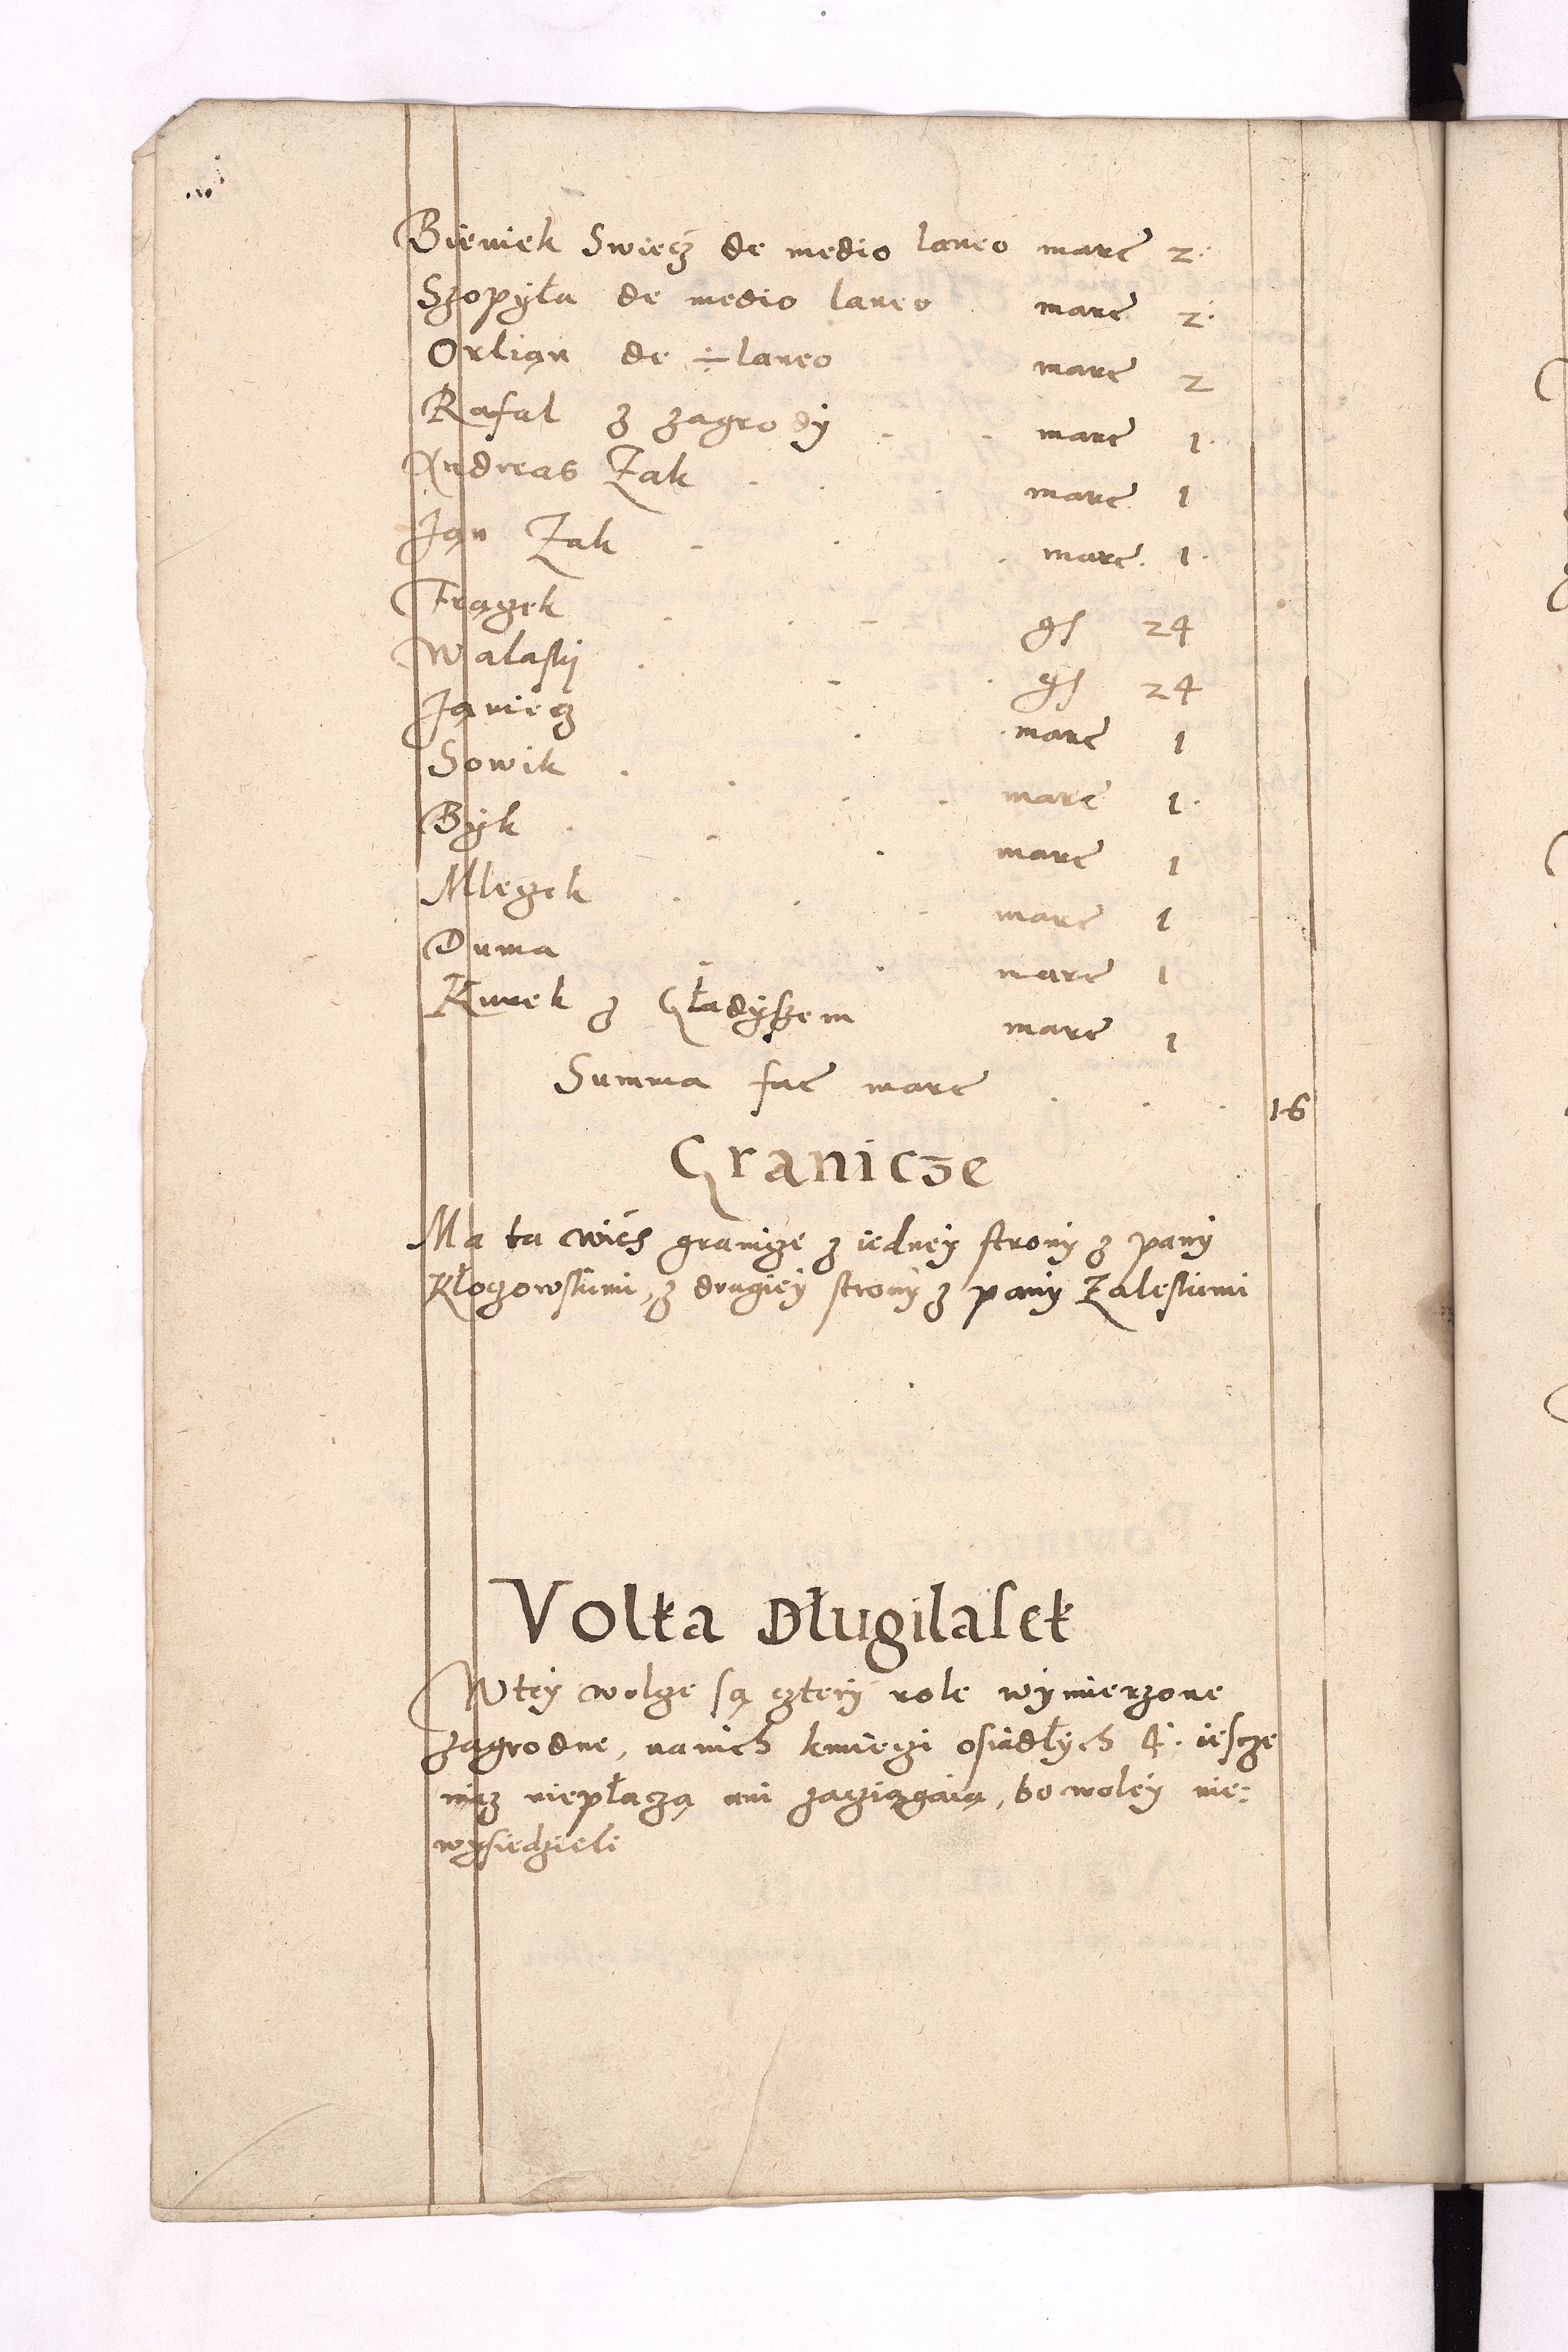 Bieniek Swiecz de medio laneo marc 2
Szopyła de medio laneo marc 2
Orlian de ÷ laneo marc 2
Rafal z zagrody marc 1
Andreas Zak marc 1
Jan Zak marc 1
Frączek gs 24
Walaski gs 24
Janiecz marc 1
Sowik marc 1
Byk marc 1
Mleczek marc 1
Duma marc 1
Kurek z Gładyszem marc 1
Summa fac marc 16
Granicze
Ma ta wies granicze z iedney strony z pany
Kłoczowskimi, z drugiey strony z pany Zaleskimi
Volka Długilasek
W tey wolcze są cztery role wymierzone
zagrodne, nanich kmieczi osiadłych 4. iescze
nicz niepłaczą ani zacziągaią, bo woley nie:
wysiedzieli